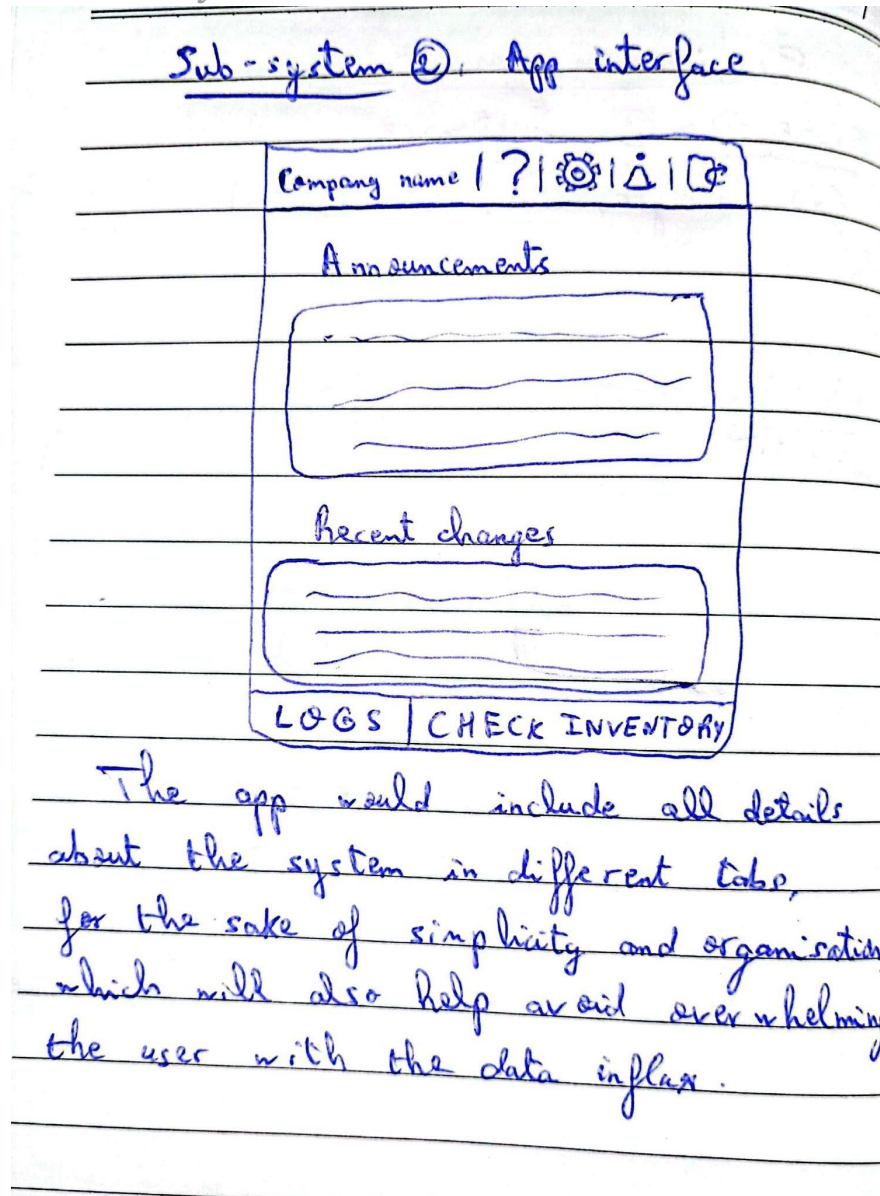 Sub-system ②. App interface
Company name | ? |
Announcements
Recent changes
LOGS | CHECK INVENTORY
The app would include all details
about the system in different tabs,
for the sake of simplicity and organisation
which will also help avoid overwhelming
the user with the data influx.